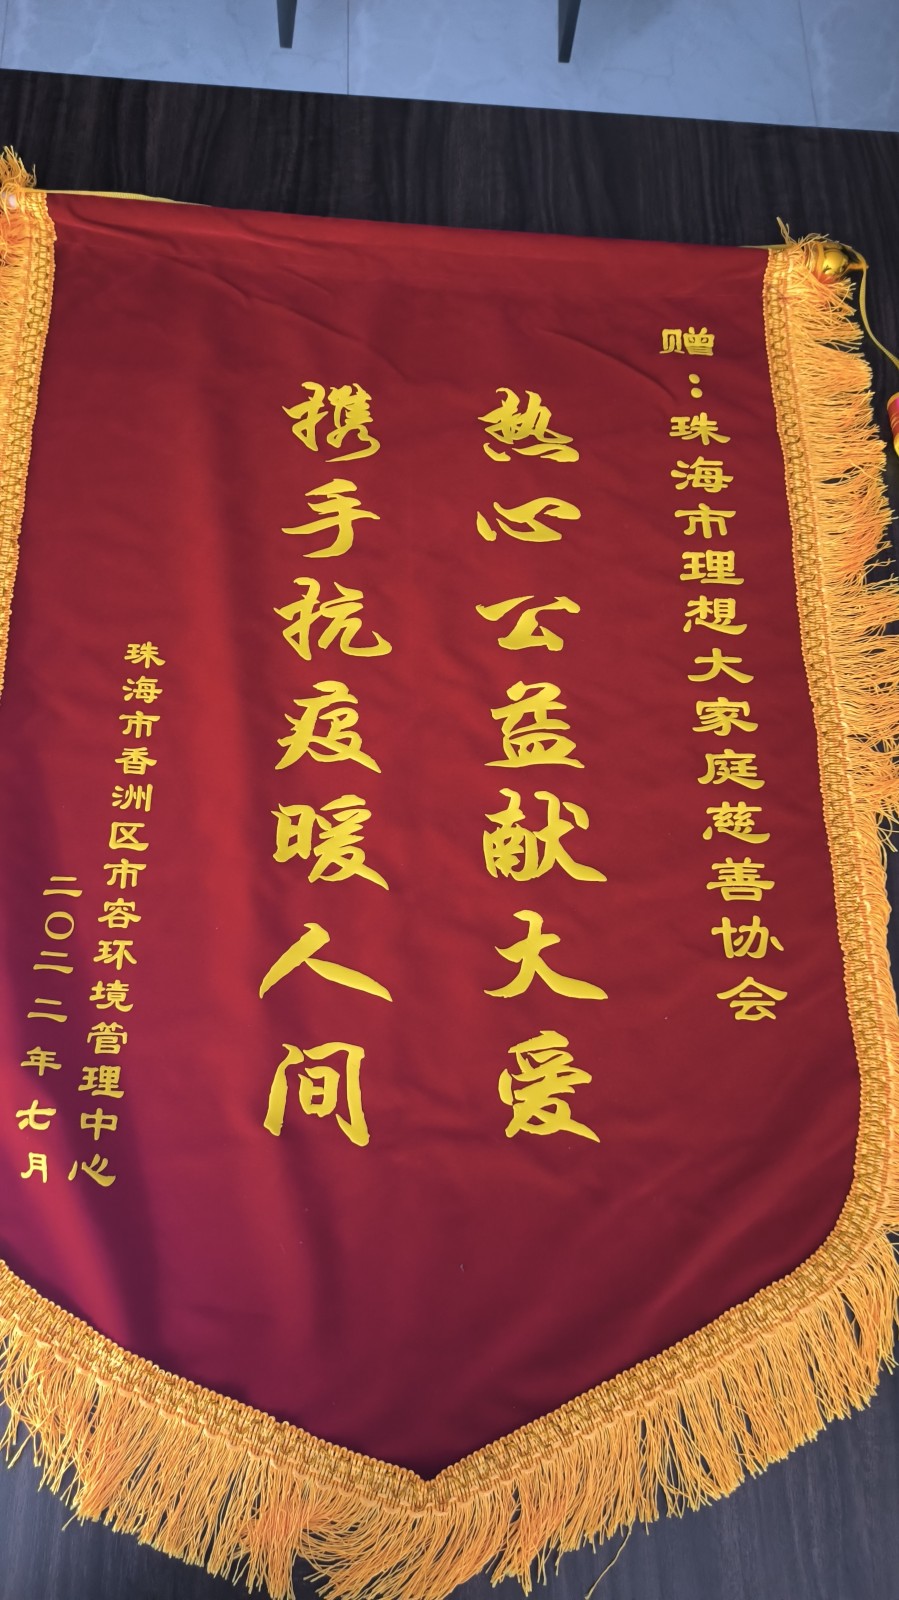 赠：珠海市理想大家庭慈善协会
热心公益献大爱
携手抗疫暖人间
珠海市香洲区市容环境管理中心
二〇二二年七月